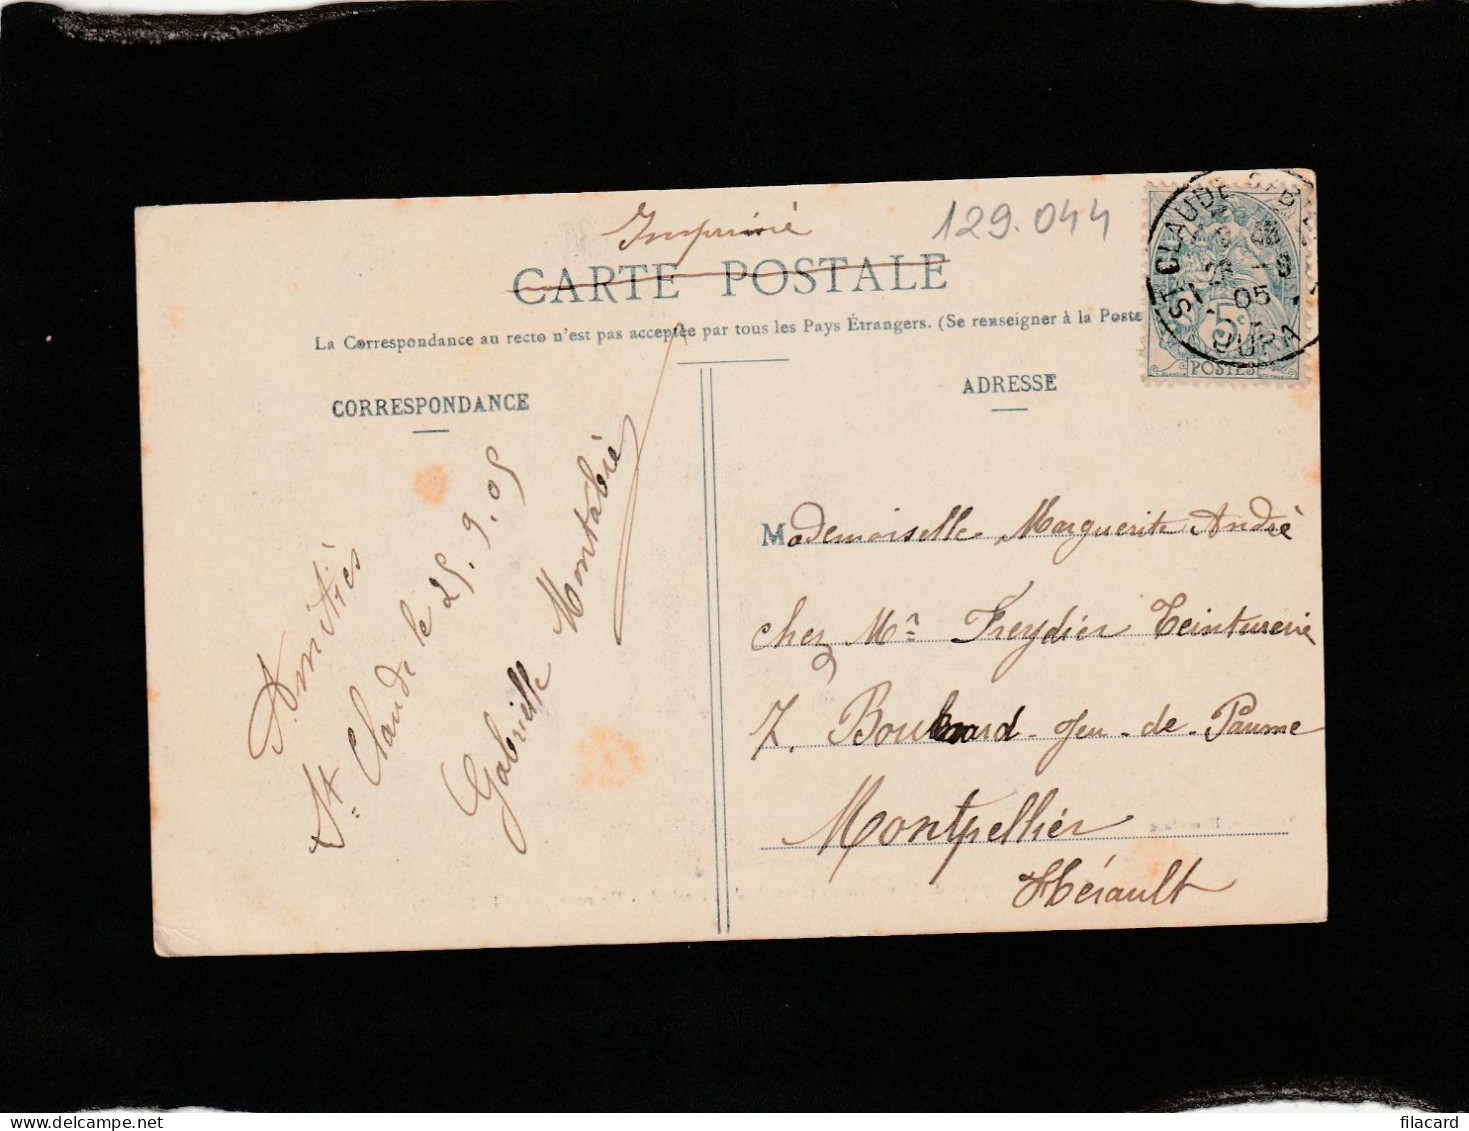 Imprimé
129.044
CARTE POSTALE
La Correspondance au recto n'est pas acceptée par tous les Pays Étrangers. (Se renseigner à la Poste
CORRESPONDANCE
ADRESSE
Amitiés
St. Claude le 25.9.05
Gabrielle Montabrié
Mademoiselle Marguerite André
chez Mr. Freydier Teinturerie
7. Boulevard Jeu-de-Paume
Montpellier
Hérault
ST CLAUDE
05
JURA
5c
POSTES
filacard